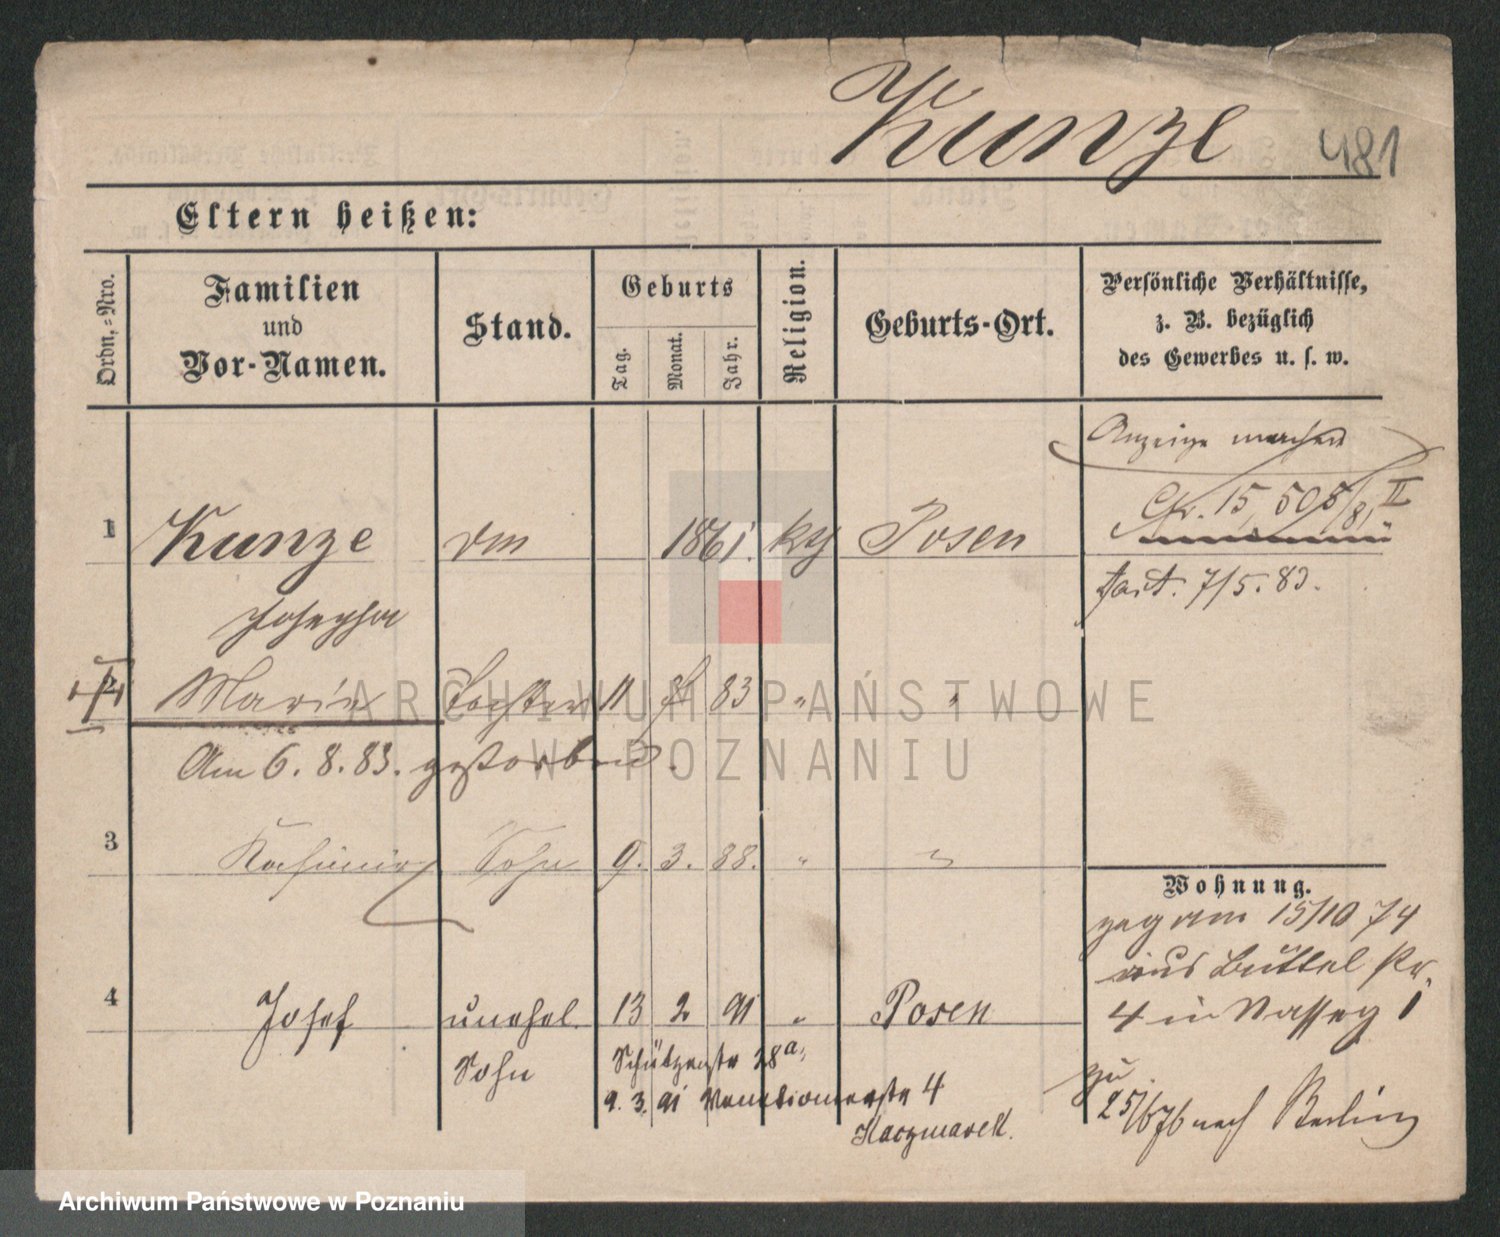 Kunze 481
Eltern heißen:
Ordn.-Nro. Familien und Vor-Namen. Stand. Geburts Tag. Monat. Jahr. Religion. Geburts-Ort. Persönliche Verhältnisse, z. B. bezüglich des Gewerbes u. s. w.
Anzeige machen
15,505/81 II
1 Kunze 1861. Posen
7/5.83.
Josepha
2 Marie Tochter 11 83 " "
Am 6. 8. 83. gestorben.
3 Kasimir Sohn 9. 3. 88. " "
Wohnung.
15/10 74
aus Büttel
4 Josef unehel. 13 2 91 " Posen
4 in
Sohn
Schützenstr 28a,
zu
9. 3. 91 4
Kaczmarek.
25/6 76 nach Berlin
ARCHIWUM PAŃSTWOWE
W POZNANIU
Archiwum Państwowe w Poznaniu